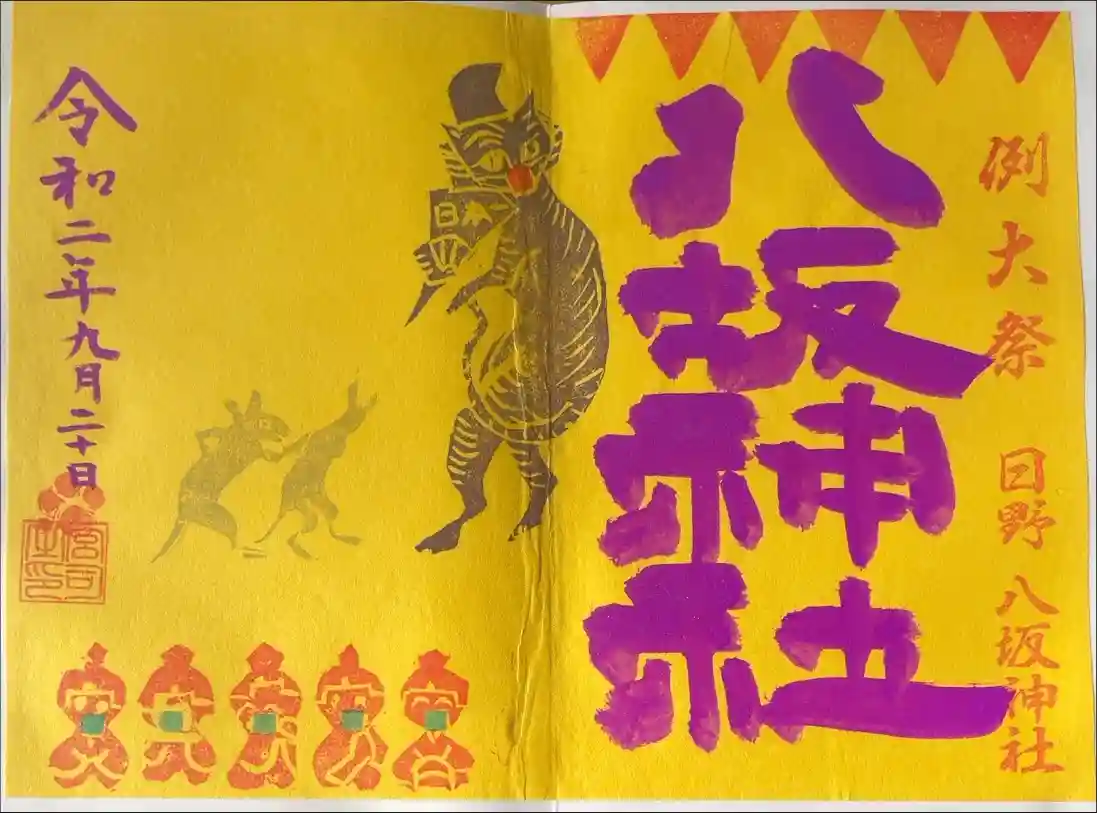 例大祭 日野 八坂神社
八坂神社
日本一
令和二年九月二十日